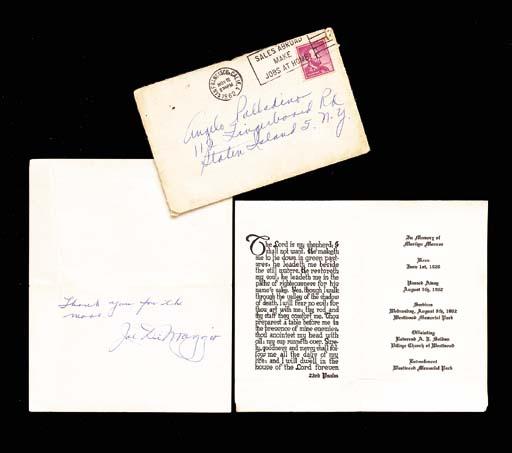 SAN FRANCISCO, CALIF.
1962
SALES ABROAD
MAKE
JOBS AT HOME
Angelo Palladino
112 Fingerboard Rd
Staten Island 5, N.Y.
Thank you for the
mass.
Joe DiMaggio
The Lord is my shepherd; I
shall not want. He maketh
me to lie down in green past-
ures; he leadeth me beside
the still waters. He restoreth
my soul; he leadeth me in the
paths of righteousness for his
name's sake. Yea, though I walk
through the valley of the shadow
of death, I will fear no evil; for
thou art with me; thy rod and
thy staff they comfort me. Thou
preparest a table before me in
the presence of mine enemies;
thou anointest my head with
oil; my cup runneth over. Sure-
ly, goodness and mercy shall fol-
low me all the days of my
life; and I will dwell in the
house of the Lord forever
23rd Psalm
In Memory of
Marilyn Monroe
Born
June 1st, 1926
Passed Away
August 5th, 1962
Services
Wednesday, August 8th, 1962
Westwood Memorial Park
Officiating
Reverend A. J. Soldan
Village Church of Westwood
Entombment
Westwood Memorial Park